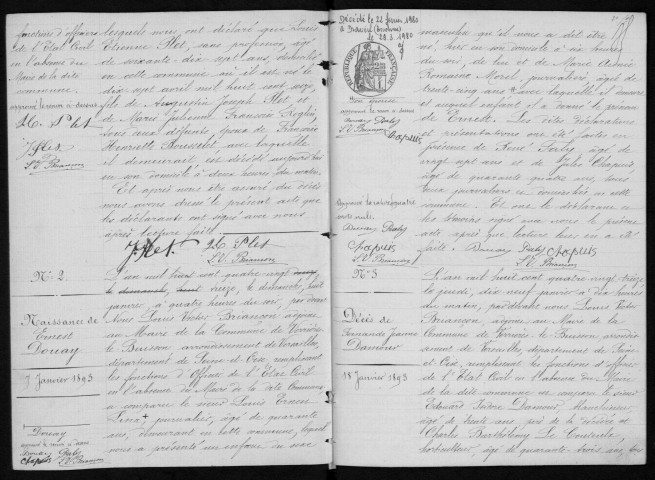 fonctions d'officier
de l'Etat Civil
en l'absence du
Maire de la dite
commune.
approuvé le renvoi ci-dessus
H. Plet
J. Plet
L. V. Briançon
lesquels nous ont déclaré que Louis
Etienne Plet, sans profession, âgé
de soixante-dix-sept ans, domicilié
en cette commune, où il est né le
dix avril mil huit cent seize,
fils de Augustin Joseph Plet et
de Marie Julienne Françoise
tous deux défunts, époux de Françoise
Henriette Rousselet avec laquelle
il demeurait est décédé aujourd'hui
en son domicile à deux heures du matin.
Et après nous être assuré du décès
nous avons dressé le présent acte que
les déclarants ont signé avec nous
après lecture faite.
J. Plet. H. Plet
L. V. Briançon
N° 2.
Naissance de
Ernest
Douay
7 Janvier 1893
Douay
approuvé le renvoi ci-dessus
Chapuis L. V. Briançon
L'an mil huit cent quatre vingt
treize, le dimanche, huit
janvier, à quatre heures du soir, par devant
Nous Louis Victor Briançon adjoint
au Maire de la Commune de Verrières
le Buisson arrondissement de Versailles,
département de Seine et Oise, remplissant
les fonctions d'Officier de l'Etat Civil
en l'absence du Maire de la dite Commune
a comparu le sieur Louis
journalier, âgé de quarante
ans, demeurant en cette commune, lequel
nous a présenté un enfant du sexe
Décédé le 22 février 1980
le 28.2.1980
REPUBLIQUE FRANÇAISE
approuvé le renvoi ci-dessus
L. V. Briançon
Chapuis
Approuvé la rature
mots nuls.
Chapuis
L. V. Briançon
masculin qu'il nous a dit être
né, hier en son domicile à six heures
du soir, de lui et de Marie
Romaine Morel, journalière, âgée de
trente-cinq ans avec laquelle il demeure
et auquel enfant il a donné le prénom
de Ernest. Les dites déclaration
et présentation ont été faites en
présence de René âgé de
vingt sept ans et de Jules Chapuis
âgé de quarante quatre ans, tous
deux journaliers et domiciliés en cette
commune. Et ont le déclarant et
les témoins signé avec nous le présent
acte après que lecture leur en a été
faite. Chapuis
L. V. Briançon
N° 3
Décès de
Fernande Jeanne
Damour
18 Janvier 1893
L'an mil huit cent quatre vingt treize
le jeudi, dix neuf janvier à dix heures
du matin, par devant nous Louis Victor
Briançon, adjoint au Maire de la
Commune de Verrières le Buisson arrondisse-
ment de Versailles, département de Seine
et Oise, remplissant les fonctions d'officier
de l'Etat Civil en l'absence du Maire
de la dite commune ont comparu le sieur
Edouard Damour,
âgé de trente ans, père de la décédée et
Charles Barthélemy Le Couteulx,
horticulteur, âgé de quarante-trois ans, tous